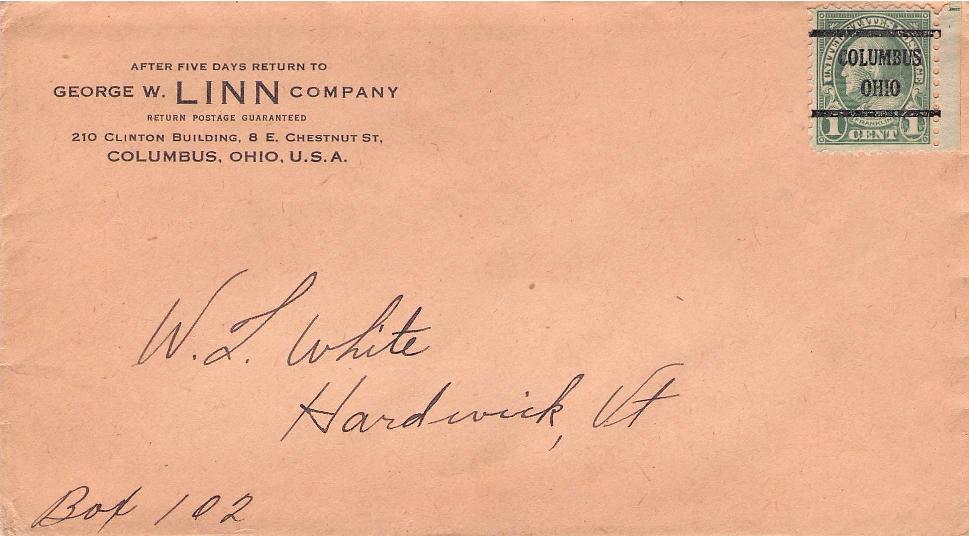 AFTER FIVE DAYS RETURN TO
GEORGE W. LINN COMPANY
RETURN POSTAGE GUARANTEED
210 CLINTON BUILDING, 8 E. CHESTNUT ST,
COLUMBUS, OHIO, U.S.A.
COLUMBUS
OHIO
FRANKLIN
1 CENT 1
W. L. White
Hardwick, Vt
Box 102